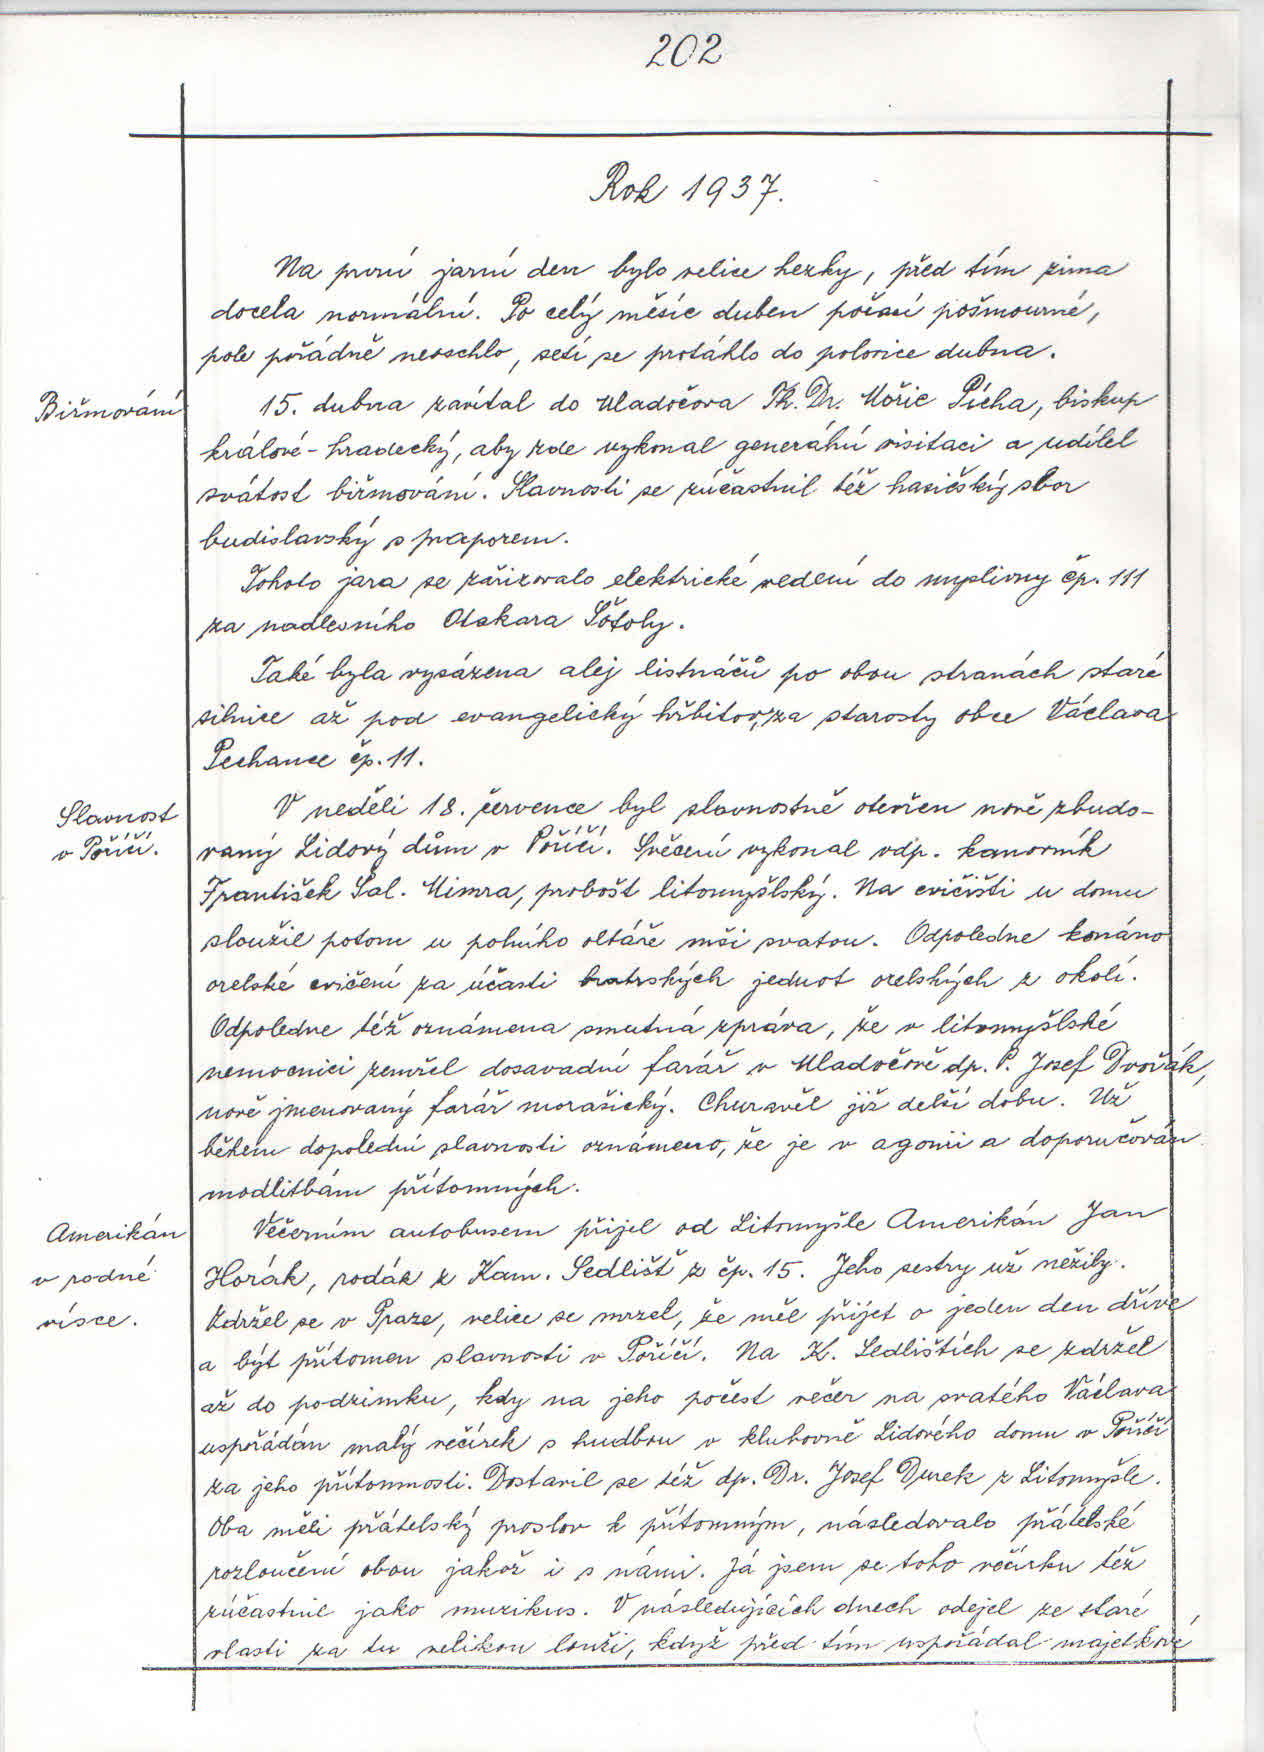 202
Rok 1937.
Na první jarní den bylo velice hezky, před tím zima
docela normální. Po celý měsíc duben počasí pošmourné,
pole pořádně neoschlo, setí se protáhlo do polovice dubna.
Biřmování
15. dubna zavítal do Mladočova Th. Dr. Mořic Pícha, biskup
králové-hradecký, aby zde vykonal generální visitaci a udílel
svátost biřmování. Slavnosti se zúčastnil též hasičský sbor
budislavský s praporem.
Tohoto jara se zařizovalo elektrické vedení do myslivny čp. 111
za nadlesního Otakara Šťoly.
Také byla vysázena alej listnáčů po obou stranách staré
silnice až pod evangelický hřbitov, za starosty obce Václava
Pechance čp. 11.
Slavnost
v Poříčí.
V neděli 18. července byl slavnostně otevřen nově zbudo-
vaný Lidový dům v Poříčí. Svěcení vykonal vdp. kanovník
František Sal. Mimra, probošt litomyšlský. Na cvičišti u domu
sloužil potom u polního oltáře mši svatou. Odpoledne konáno
orelské cvičení za účasti bratrských jednot orelských z okolí.
Odpoledne též oznámena smutná zpráva, že v litomyšlské
nemocnici zemřel dosavadní farář v Mladočově dp. P. Josef Dvořák,
nově jmenovaný farář morašický. Churavěl již delší dobu. Už
během dopolední slavnosti oznámeno, že je v agonii a doporučován
modlitbám přítomných.
Amerikán
v rodné
vísce.
Večerním autobusem přijel od Litomyšle Amerikán Jan
Horák, rodák z Kam. Sedlišť z čp. 15. Jeho sestry už nežily.
Zdržel se v Praze, velice se mrzel, že měl přijet o jeden den dříve
a být přítomen slavnosti v Poříčí. Na K. Sedlištích se zdržel
až do podzimku, kdy na jeho počest večer na svatého Václava
uspořádán malý večírek s hudbou v klubovně Lidového domu v Poříčí
za jeho přítomnosti. Dostavil se též dp. Dr. Josef Durek z Litomyšle.
Oba měli přátelský proslov k přítomným, následovalo přátelské
rozloučení obou jakož i s námi. Já jsem se toho večírku též
zúčastnil jako muzikus. V následujících dnech odejel ze staré
vlasti za tu velikou louži, když před tím uspořádal majetkové